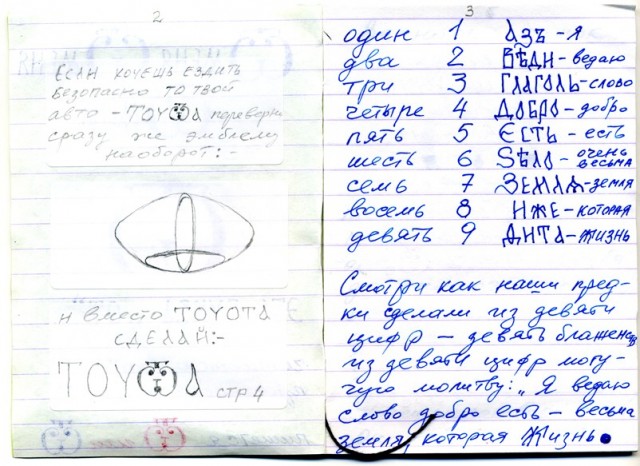 2
Если хочешь ездить
безопасно то твой
авто - TOYOTA переверни
сразу же эмблему
наоборот:-
и вместо TOYOTA
СДЕЛАЙ:-
TOYOTA стр 4
3
один 1 АЗЪ - я
два 2 ВѢДИ - ведаю
три 3 ГЛАГОЛЬ - слово
четыре 4 ДОБРО - добро
пять 5 ЄСТЬ - есть
шесть 6 ЅѢЛО - очень весьма
семь 7 ЗЕМЛѦ - земля
восемь 8 ИЖЕ - которая
девять 9 ФИТА - жизнь
Смотри как наши пред-
ки сделали из девяти
цифр — девять блаженств
из девяти цифр могу-
чую молитву: „Я ведаю
слово добро есть — весьма
земля, которая Жизнь.